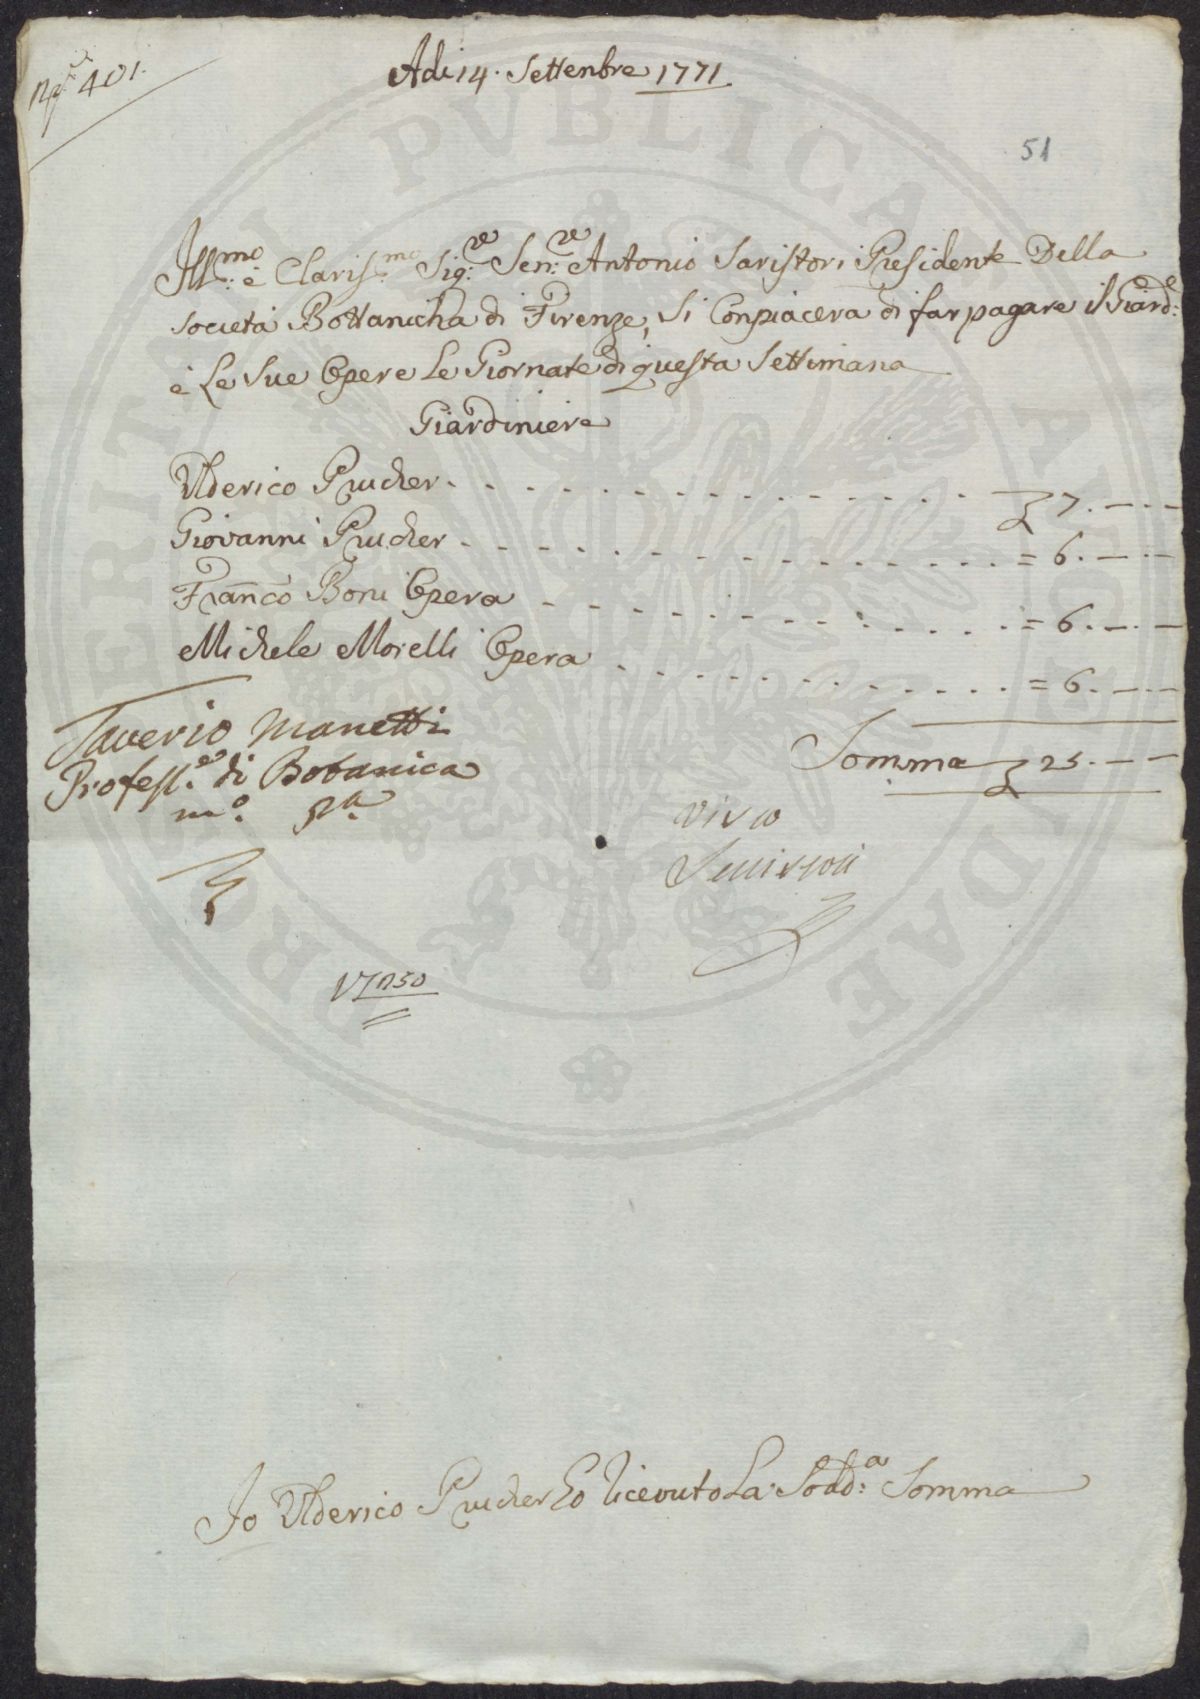 401.
Adi 14. Settenbre 1771.
51
Ill:mo è Claris:mo Sig:re Sen:re Antonio Saristori Presidente Della
Societá Bottanicha di Firenze, Si Conpiacera di far pagare il Giard:e
è Le Sue Opere Le Giornate di questa Settimana
Giardiniere
Ulderico Prucher . . . . . . . . . . . . . . . . £ 7. — —
Giovanni Prucher . . . . . . . . . . . . . . . = 6. — —
Franco Boni Opera . . . . . . . . . . . . . = 6. — —
Michele Morelli Opera . . . . . . . . . . . = 6. — —
Somma £ 25. — —
Saverio Manetti
Profess.e di Botanica
m.o p.a
Visto
Serristori
Io Ulderico Prucher Eo Riceouto La Sodd:a Somma
PUBLICAE